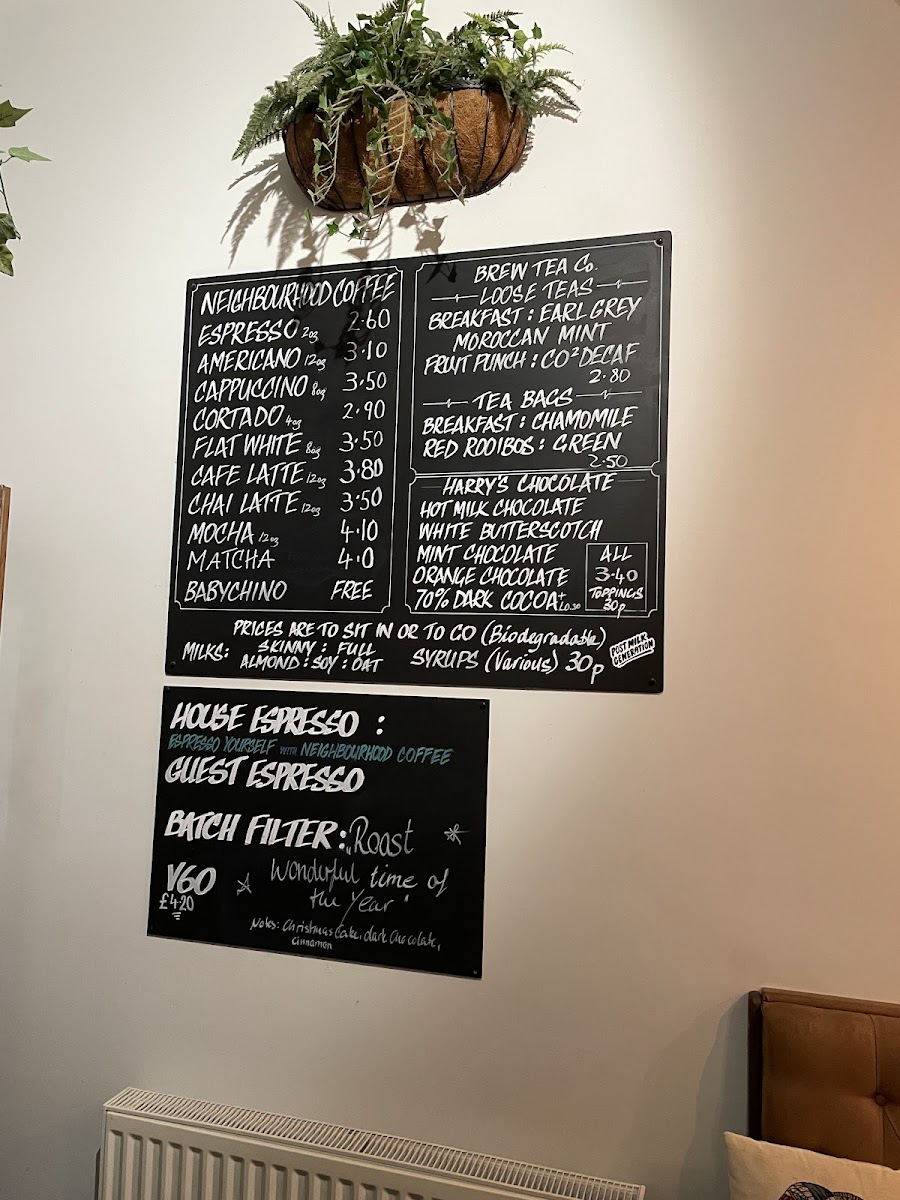 NEIGHBOURHOOD COFFEE
ESPRESSO 2oz 2.60
AMERICANO 12oz 3.10
CAPPUCCINO 8oz 3.50
CORTADO 4oz 2.90
FLAT WHITE 8oz 3.50
CAFE LATTE 12oz 3.80
CHAI LATTE 12oz 3.50
MOCHA 12oz 4.10
MATCHA 4.0
BABYCHINO FREE
BREW TEA Co.
LOOSE TEAS
BREAKFAST : EARL GREY
MOROCCAN MINT
FRUIT PUNCH : CO² DECAF
2.80
TEA BAGS
BREAKFAST : CHAMOMILE
RED ROOIBOS : GREEN
2.50
HARRY'S CHOCOLATE
HOT MILK CHOCOLATE
WHITE BUTTERSCOTCH
MINT CHOCOLATE
ORANGE CHOCOLATE
70% DARK COCOA + £0.30
ALL
3.40
TOPPINGS
30p
PRICES ARE TO SIT IN OR TO GO (Biodegradable)
MILKS: SKINNY : FULL
ALMOND : SOY : OAT
SYRUPS (Various) 30p
POST MILK
GENERATION
HOUSE ESPRESSO :
ESPRESSO YOURSELF WITH NEIGHBOURHOOD COFFEE
GUEST ESPRESSO
BATCH FILTER : Roast
V60
£4.20
"Wonderful time of
the Year"
Notes: Christmas Cake, dark Chocolate,
Cinnamon